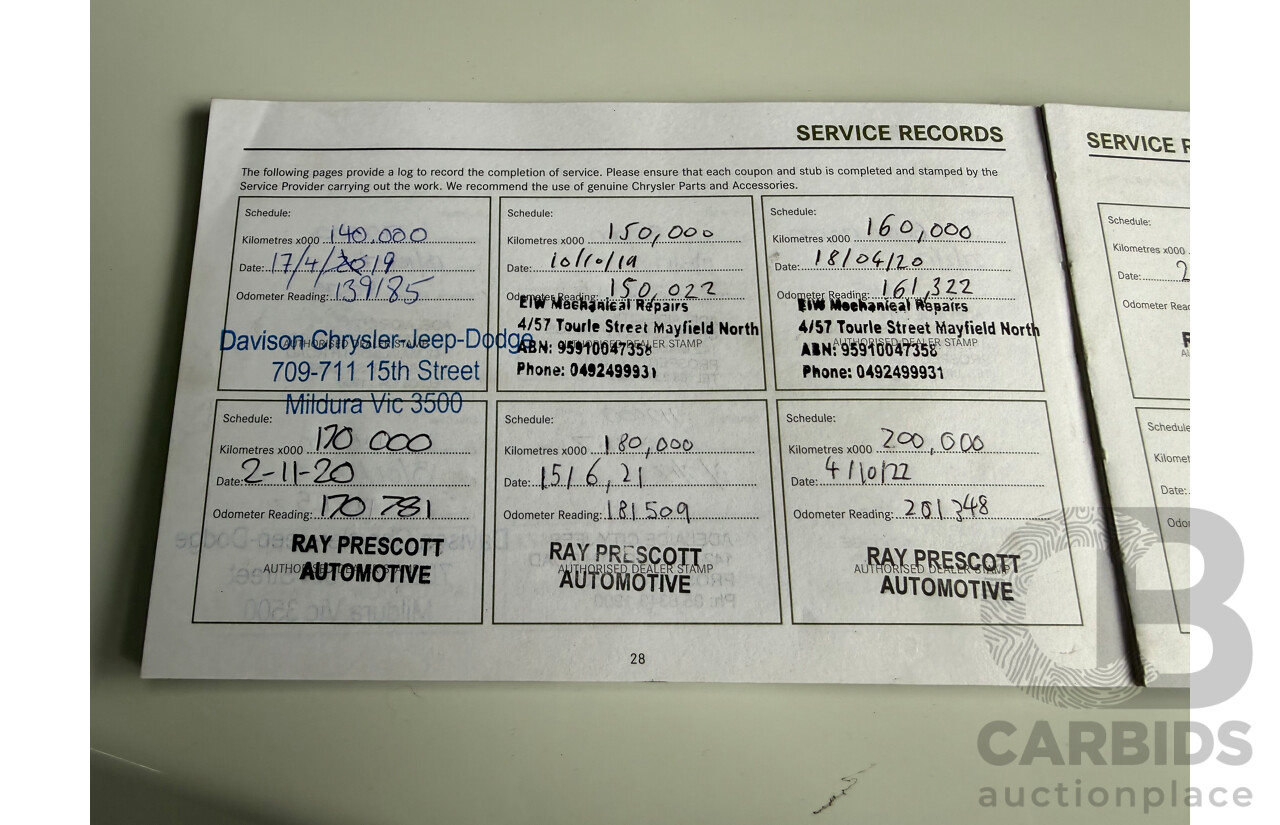 SERVICE RECORDS
The following pages provide a log to record the completion of service. Please ensure that each coupon and stub is completed and stamped by the
Service Provider carrying out the work. We recommend the use of genuine Chrysler Parts and Accessories.
Schedule:
Kilometres x000 140,000
Date: 17/4/2019
Odometer Reading: 139185
AUTHORISED DEALER STAMP
Davison Chrysler-Jeep-Dodge
709-711 15th Street
Mildura Vic 3500
Schedule:
Kilometres x000 150,000
Date: 10/10/19
Odometer Reading: 150,022
EIW Mechanical Repairs
4/57 Tourle Street Mayfield North
AUTHORISED DEALER STAMP
ABN: 95910047358
Phone: 0492499931
Schedule:
Kilometres x000 160,000
Date: 18/04/20
Odometer Reading: 161,322
EIW Mechanical Repairs
4/57 Tourle Street Mayfield North
AUTHORISED DEALER STAMP
ABN: 95910047358
Phone: 0492499931
Schedule:
Kilometres x000 170 000
Date: 2-11-20
Odometer Reading: 170 781
RAY PRESCOTT
AUTHORISED DEALER STAMP
AUTOMOTIVE
Schedule:
Kilometres x000 180,000
Date: 15/6,21
Odometer Reading: 181509
RAY PRESCOTT
AUTHORISED DEALER STAMP
AUTOMOTIVE
Schedule:
Kilometres x000 200,000
Date: 4/10/22
Odometer Reading: 201348
RAY PRESCOTT
AUTHORISED DEALER STAMP
AUTOMOTIVE
28
SERVICE R
Schedule:
Kilometres x000
Date: 2
Odometer Reac
Schedule
Kilomet
Date:
Odo
CB
CARBIDS
auctionplace